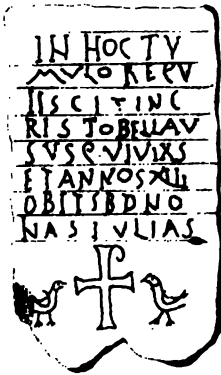 IN HOC TV
MVLO REQV
IISCIT INC
RISTO BELLAV
SVS QVI VIXS
ET ANNOS
OBIT SBD NO
NAS IVLIAS